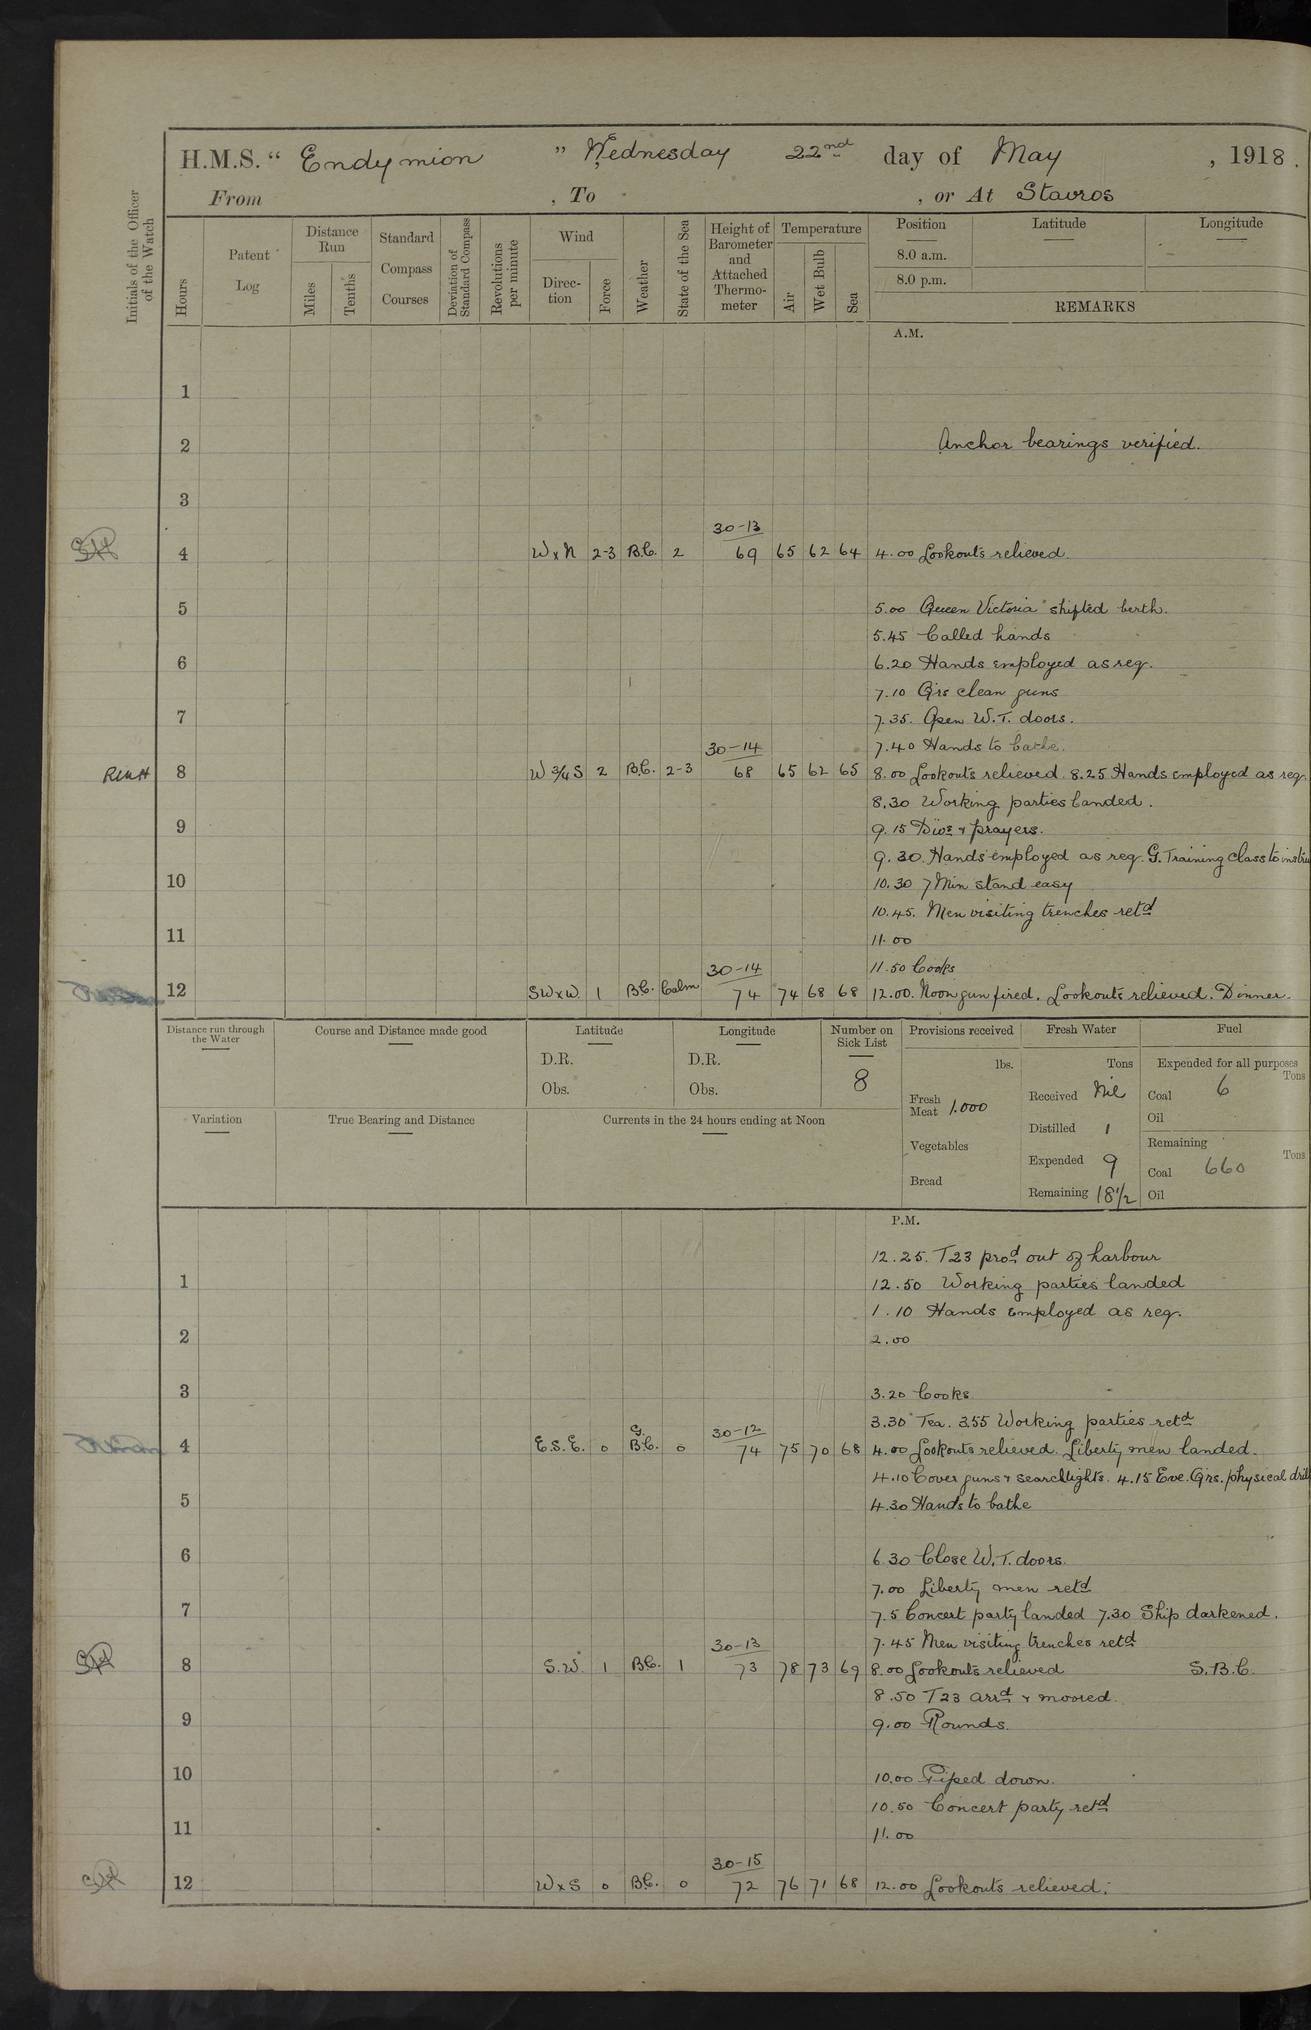 H.M.S. " Endymion " Wednesday 22nd day of May , 1918.
From , To , or At Stavros
Initials of the Officer of the Watch
Hours
Patent Log
Distance Run
Miles
Tenths
Standard Compass Courses
Deviation of Standard Compass
Revolutions per minute
Wind
Direc-tion
Force
Weather
State of the Sea
Height of Barometer and Attached Thermo-meter
Temperature
Air
Wet Bulb
Sea
Position Latitude Longitude
8.0 a.m.
8.0 p.m.
REMARKS
A.M.
1
2 Anchor bearings verified.
3
30-13
4 W x N 2-3 B.C. 2 69 65 62 64 4.00 Lookouts relieved.
5 5.00 Queen Victoria" shifted berth.
5.45 Called hands
6 6.20 Hands employed as req.
7.10 Qrs clean guns
7 7.35. Open W.T. doors.
30-14 7.40 Hands to bathe.
8 W ¾ S 2 B.C. 2-3 68 65 62 65 8.00 Lookouts relieved. 8.25 Hands employed as req.
8.30 Working parties landed.
9 9.15 Divs & prayers.
9.30. Hands employed as req. G. Training class to instru
10 10.30 7 Min stand easy
10.45. Men visiting trenches retd
11 11.00
30-14 11.50 Cooks
12 SW x W. 1 B.C. Calm 74 74 68 68 12.00. Noon gun fired. Lookouts relieved. Dinner.
Distance run through the Water
Course and Distance made good
Latitude
D.R.
Obs.
Longitude
D.R.
Obs.
Number on Sick List
8
Provisions received
lbs.
Fresh Meat 1.000
Vegetables
Bread
Fresh Water
Tons
Received Nil
Distilled 1
Expended 9
Remaining 18½
Fuel
Expended for all purposes
Tons
Coal 6
Oil
Remaining
Tons
Coal 660
Oil
Variation
True Bearing and Distance
Currents in the 24 hours ending at Noon
P.M.
12.25. T23 prod out of harbour
1 12.50 Working parties landed
1.10 Hands employed as req.
2 2.00
3 3.20 Cooks
30-12 3.30 Tea. 3.55 Working parties retd
4 E.S.E. 0 G. B.C. 0 74 75 70 68 4.00 Lookouts relieved. Liberty men landed.
4.10 Cover guns & searchlights. 4.15 Eve. Qrs. physical drill
5 4.30 Hands to bathe
6 6.30 Close W.T. doors.
7.00 Liberty men retd
7 7.5 Concert party landed 7.30 Ship darkened.
30-13 7.45 Men visiting trenches retd
8 S.W. 1 B.C. 1 73 78 73 69 8.00 Lookouts relieved S.B.C.
8.50 T23 arrd & moored.
9 9.00 Rounds.
10 10.00 Piped down.
10.50 Concert party retd
11 11.00
30-15
12 W x S 0 B.C. 0 72 76 71 68 12.00 Lookouts relieved.